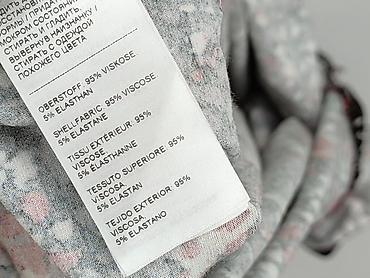 ВОССТАНОВЛЕ
ФОРМЫ / ПРИДАТ
МОКРОМ СОСТОЯНИ
СТИРАТЬ И ГЛАДИТЬ,
ВЫВЕРНУВ НАИЗНАНКУ /
СТИРАТЬ С ОДЕЖДОЙ
ПОХОЖЕГО ЦВЕТА
OBERSTOFF: 95% VISKOSE
5% ELASTHAN
SHELL FABRIC: 95% VISCOSE
5% ELASTANE
TISSU EXTÉRIEUR: 95%
VISCOSE
5% ELASTHANNE
TESSUTO SUPERIORE: 95%
VISCOSA
5% ELASTAN
TEJIDO EXTERIOR: 95%
VISCOSA
5% ELASTANO